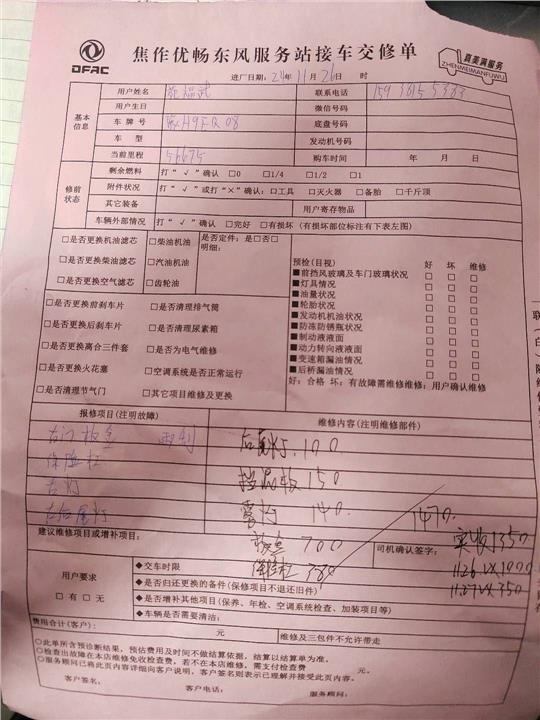 DFAC
焦作优畅东风服务站接车交修单
真美满服务
ZHENMEIMANFUWU
进厂日期：24年11月26日 时
基本信息
用户姓名 联系电话
用户生日 微信号码
车牌号 底盘号码
车型 发动机号码
当前里程 56675 购车时间 年 月 日
修前状态
剩余燃料 打“√”确认 □0 □1/4 □1/2 □1
附件状况 打“√”或打“×”确认：□工具 □灭火器 □备胎 □千斤顶
其它装备 用户寄存物品
车辆外部情况 打“√”确认 □完好 □有损坏（有损坏部位标注有下表左图）
□是否更换机油滤芯 □柴油机油 是否定件：是□否□
□是否更换柴油滤芯 □汽油机油 明细：
□是否更换空气滤芯 □齿轮油
□是否更换前刹车片 □是否清理排气筒
□是否更换后刹车片 □是否清理尿素箱
□是否更换离合三件套 □是否为电气维修
□是否更换火花塞 □空调系统是否正常运行
□是否清理节气门 □其它项目维修及更换
预检(目视) 好 坏 维修
■前挡风玻璃及车门玻璃状况 □ □ □
■灯具情况 □ □ □
■油量状况 □ □ □
■轮胎状况 □ □ □
■发动机机油状况 □ □ □
■防冻防锈瓶状况 □ □ □
■制动液液面 □ □ □
■动力转向液液面 □ □ □
■变速箱漏油情况 □ □ □
■后桥漏油情况 □ □ □
好：合格 坏：有故障需维修维修：用户确认维修
报修项目(注明故障) 维修内容(注明维修部件)
右门板金
后尾灯.100
保险杠
挡泥板150
右灯
雾灯 140
1470.
右后尾灯
钣金 700
建议维修项目或增补项目：
司机确认签字：
实收1350
保险杠 380
11.26 VX1000
11.27VX350
用户要求
□有□无
◆交车时限
◆是否归还更换的备件(保修项目不退还旧件)
◆是否增补其他项目(保养、年检、空调系统检查、加装项目等)
◆车辆是否需要清洁：
费用合计(客户)： 元 维修及三包件不允许带走
○此单所含预诊断结果，预估费用及时间不做结算依据，结算以结算单为准。
○检查出故障在本店维修免收检查费，若不在本店维修，需支付检查费 元。
○服务顾问已将此页内容详细向客户说明，客户签名则表示已理解并接受此页内容。
客户签名： 客户电话： 服务顾问：